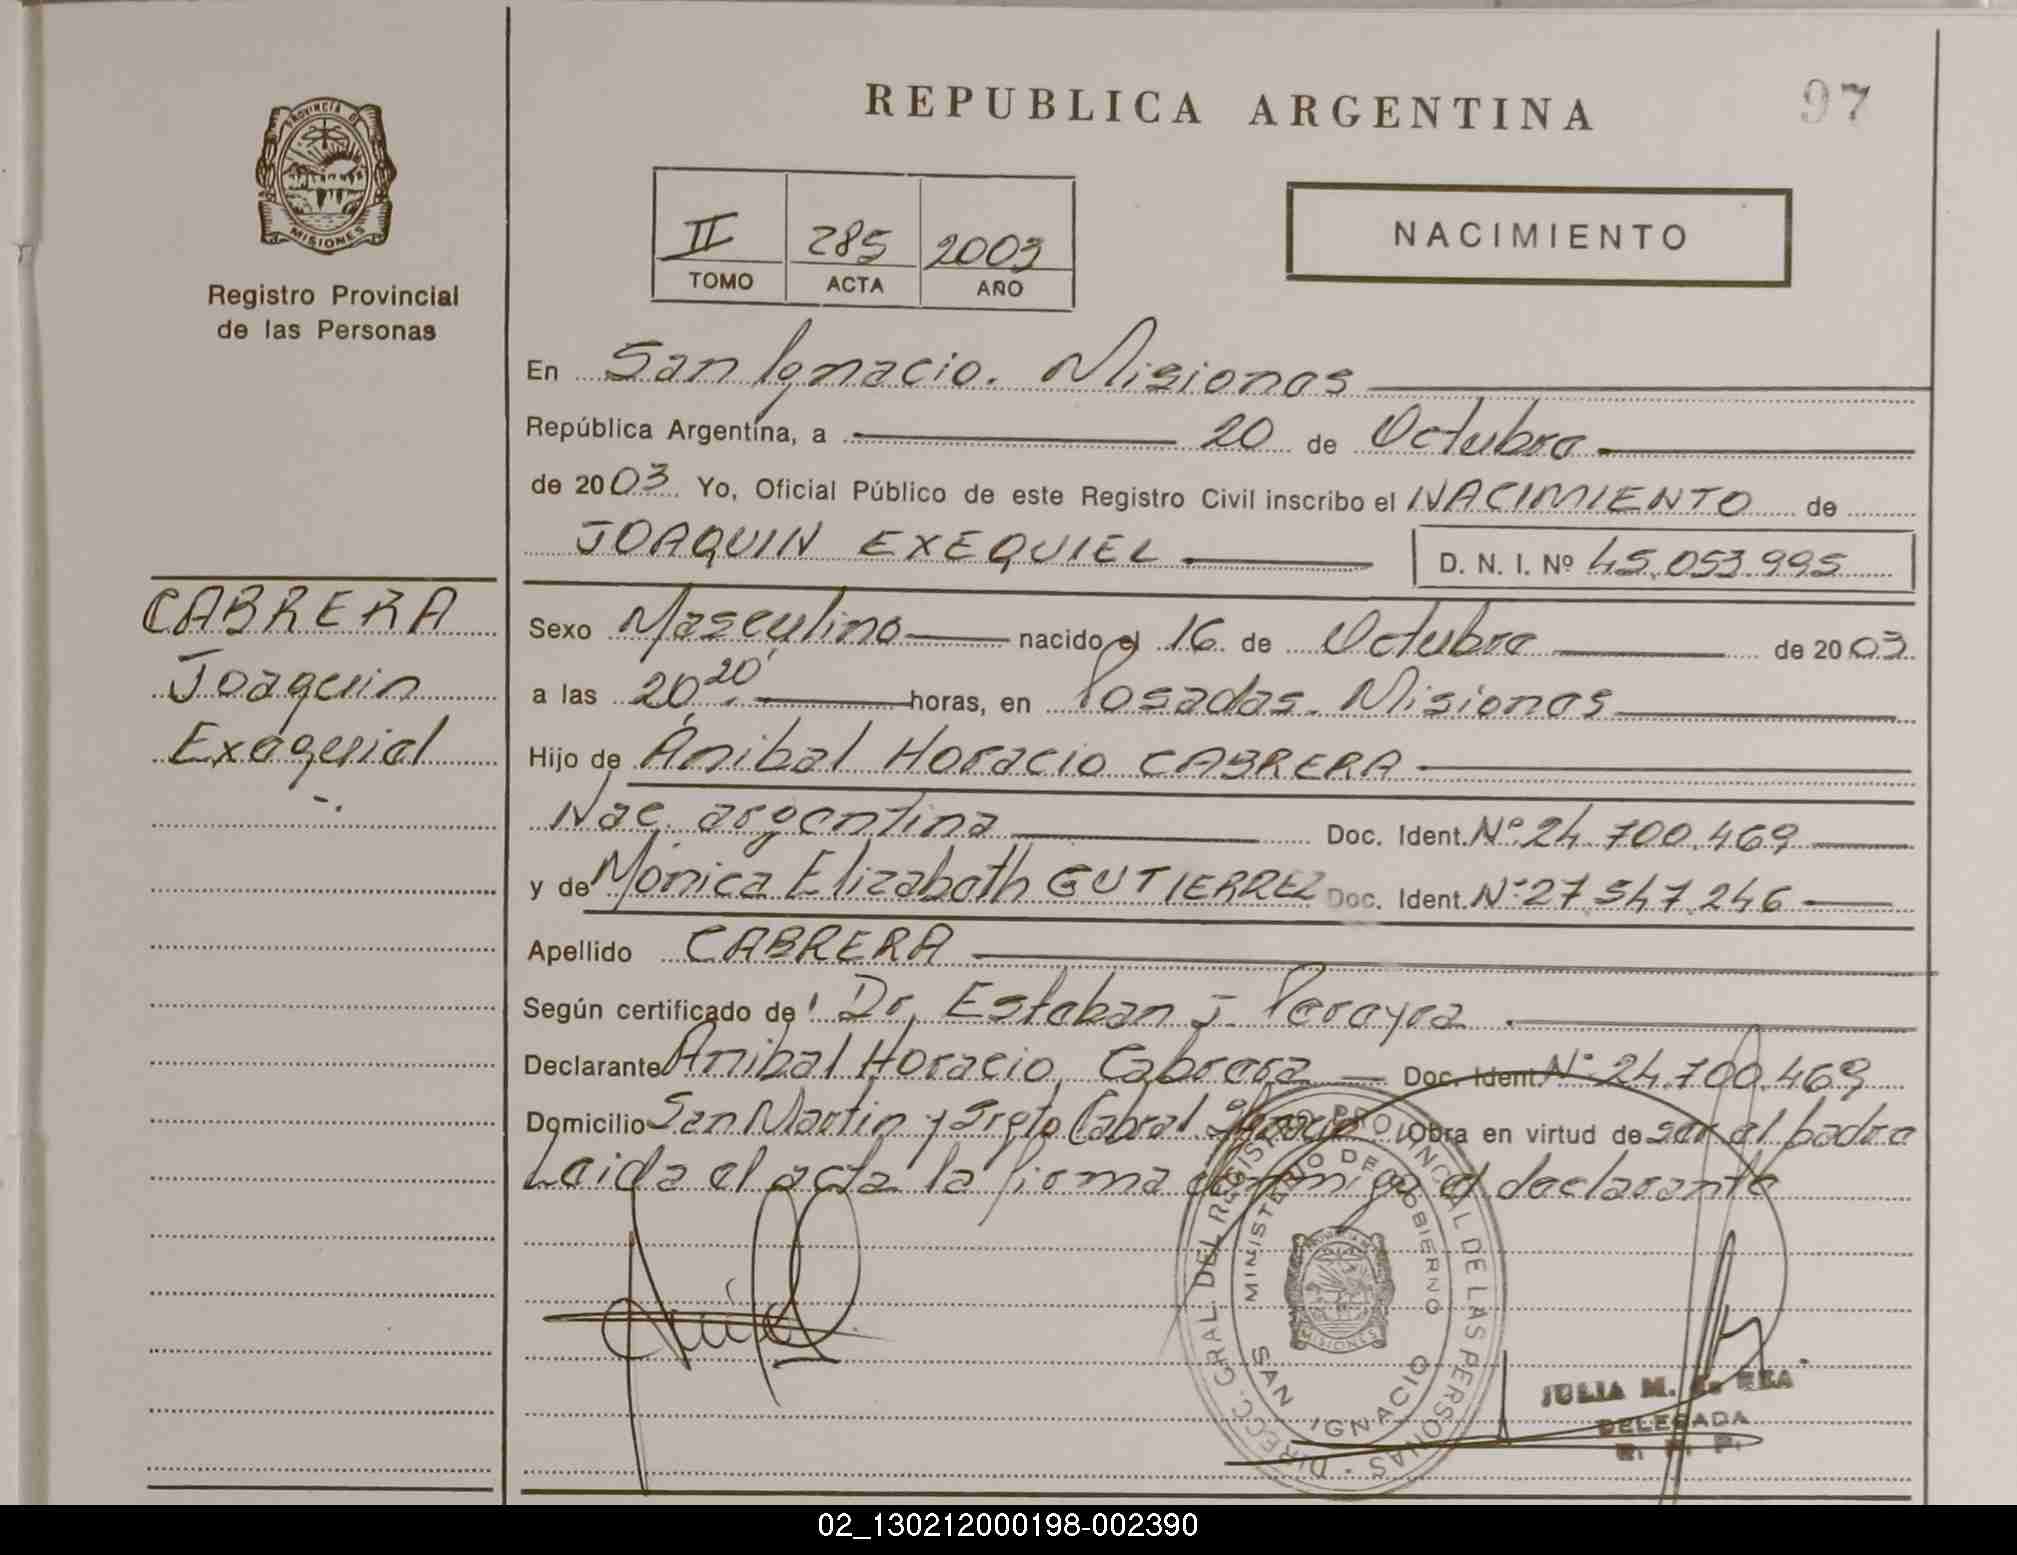 REPUBLICA ARGENTINA
97
PROVINCIA DE
MISIONES
Registro Provincial
de las Personas
II 285 2003
TOMO ACTA AÑO
NACIMIENTO
En San Ignacio. Misiones
República Argentina, a 20 de Octubre
de 2003 Yo, Oficial Público de este Registro Civil inscribo el NACIMIENTO de
JOAQUIN EXEQUIEL D. N. I. Nº 45.053.995
CABRERA
Joaquin
Exequiel
Sexo Masculino nacido el 16 de Octubre de 2003
a las 20 20' horas, en Posadas. Misiones
Hijo de Anibal Horacio CABRERA
Nac. argentina Doc. Ident. Nº 24.700.469
y de Mónica Elizabeth GUTIERREZ Doc. Ident. Nº 27.547.246
Apellido CABRERA
Según certificado de Dr. Esteban J. Pereyra
Declarante Anibal Horacio Cabrera Doc. Ident. Nº 24.700.469
Domicilio San Martin y Srgto Cabral. Obra en virtud de ser el padre
Leida el acta la firma conmigo el declarante
DIRECC. GRAL. DEL REGISTRO PROVINCIAL DE LAS PERSONAS
MINISTERIO DE GOBIERNO
SAN IGNACIO
MISIONES
JULIA M. de REA
DELEGADA
R. P. P.
02_130212000198-002390